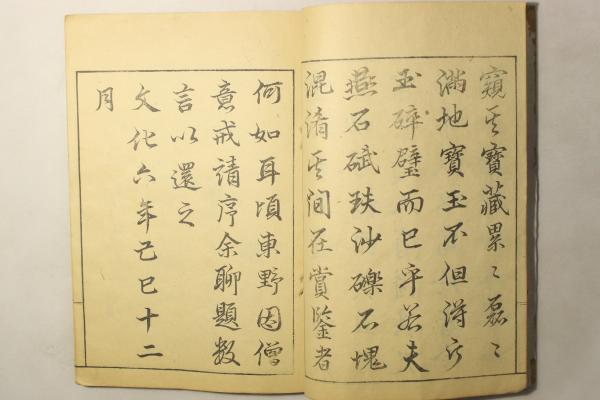 窺其寶藏累〻磊〻
滿地寶玉不但得斷
玉碎璧而已乎若夫
燕石碔玞沙礫石塊
混淆其間在賞鑒者
何如耳頃東野因僧
意戒請序余聊題數
言以還之
文化六年己巳十二
月